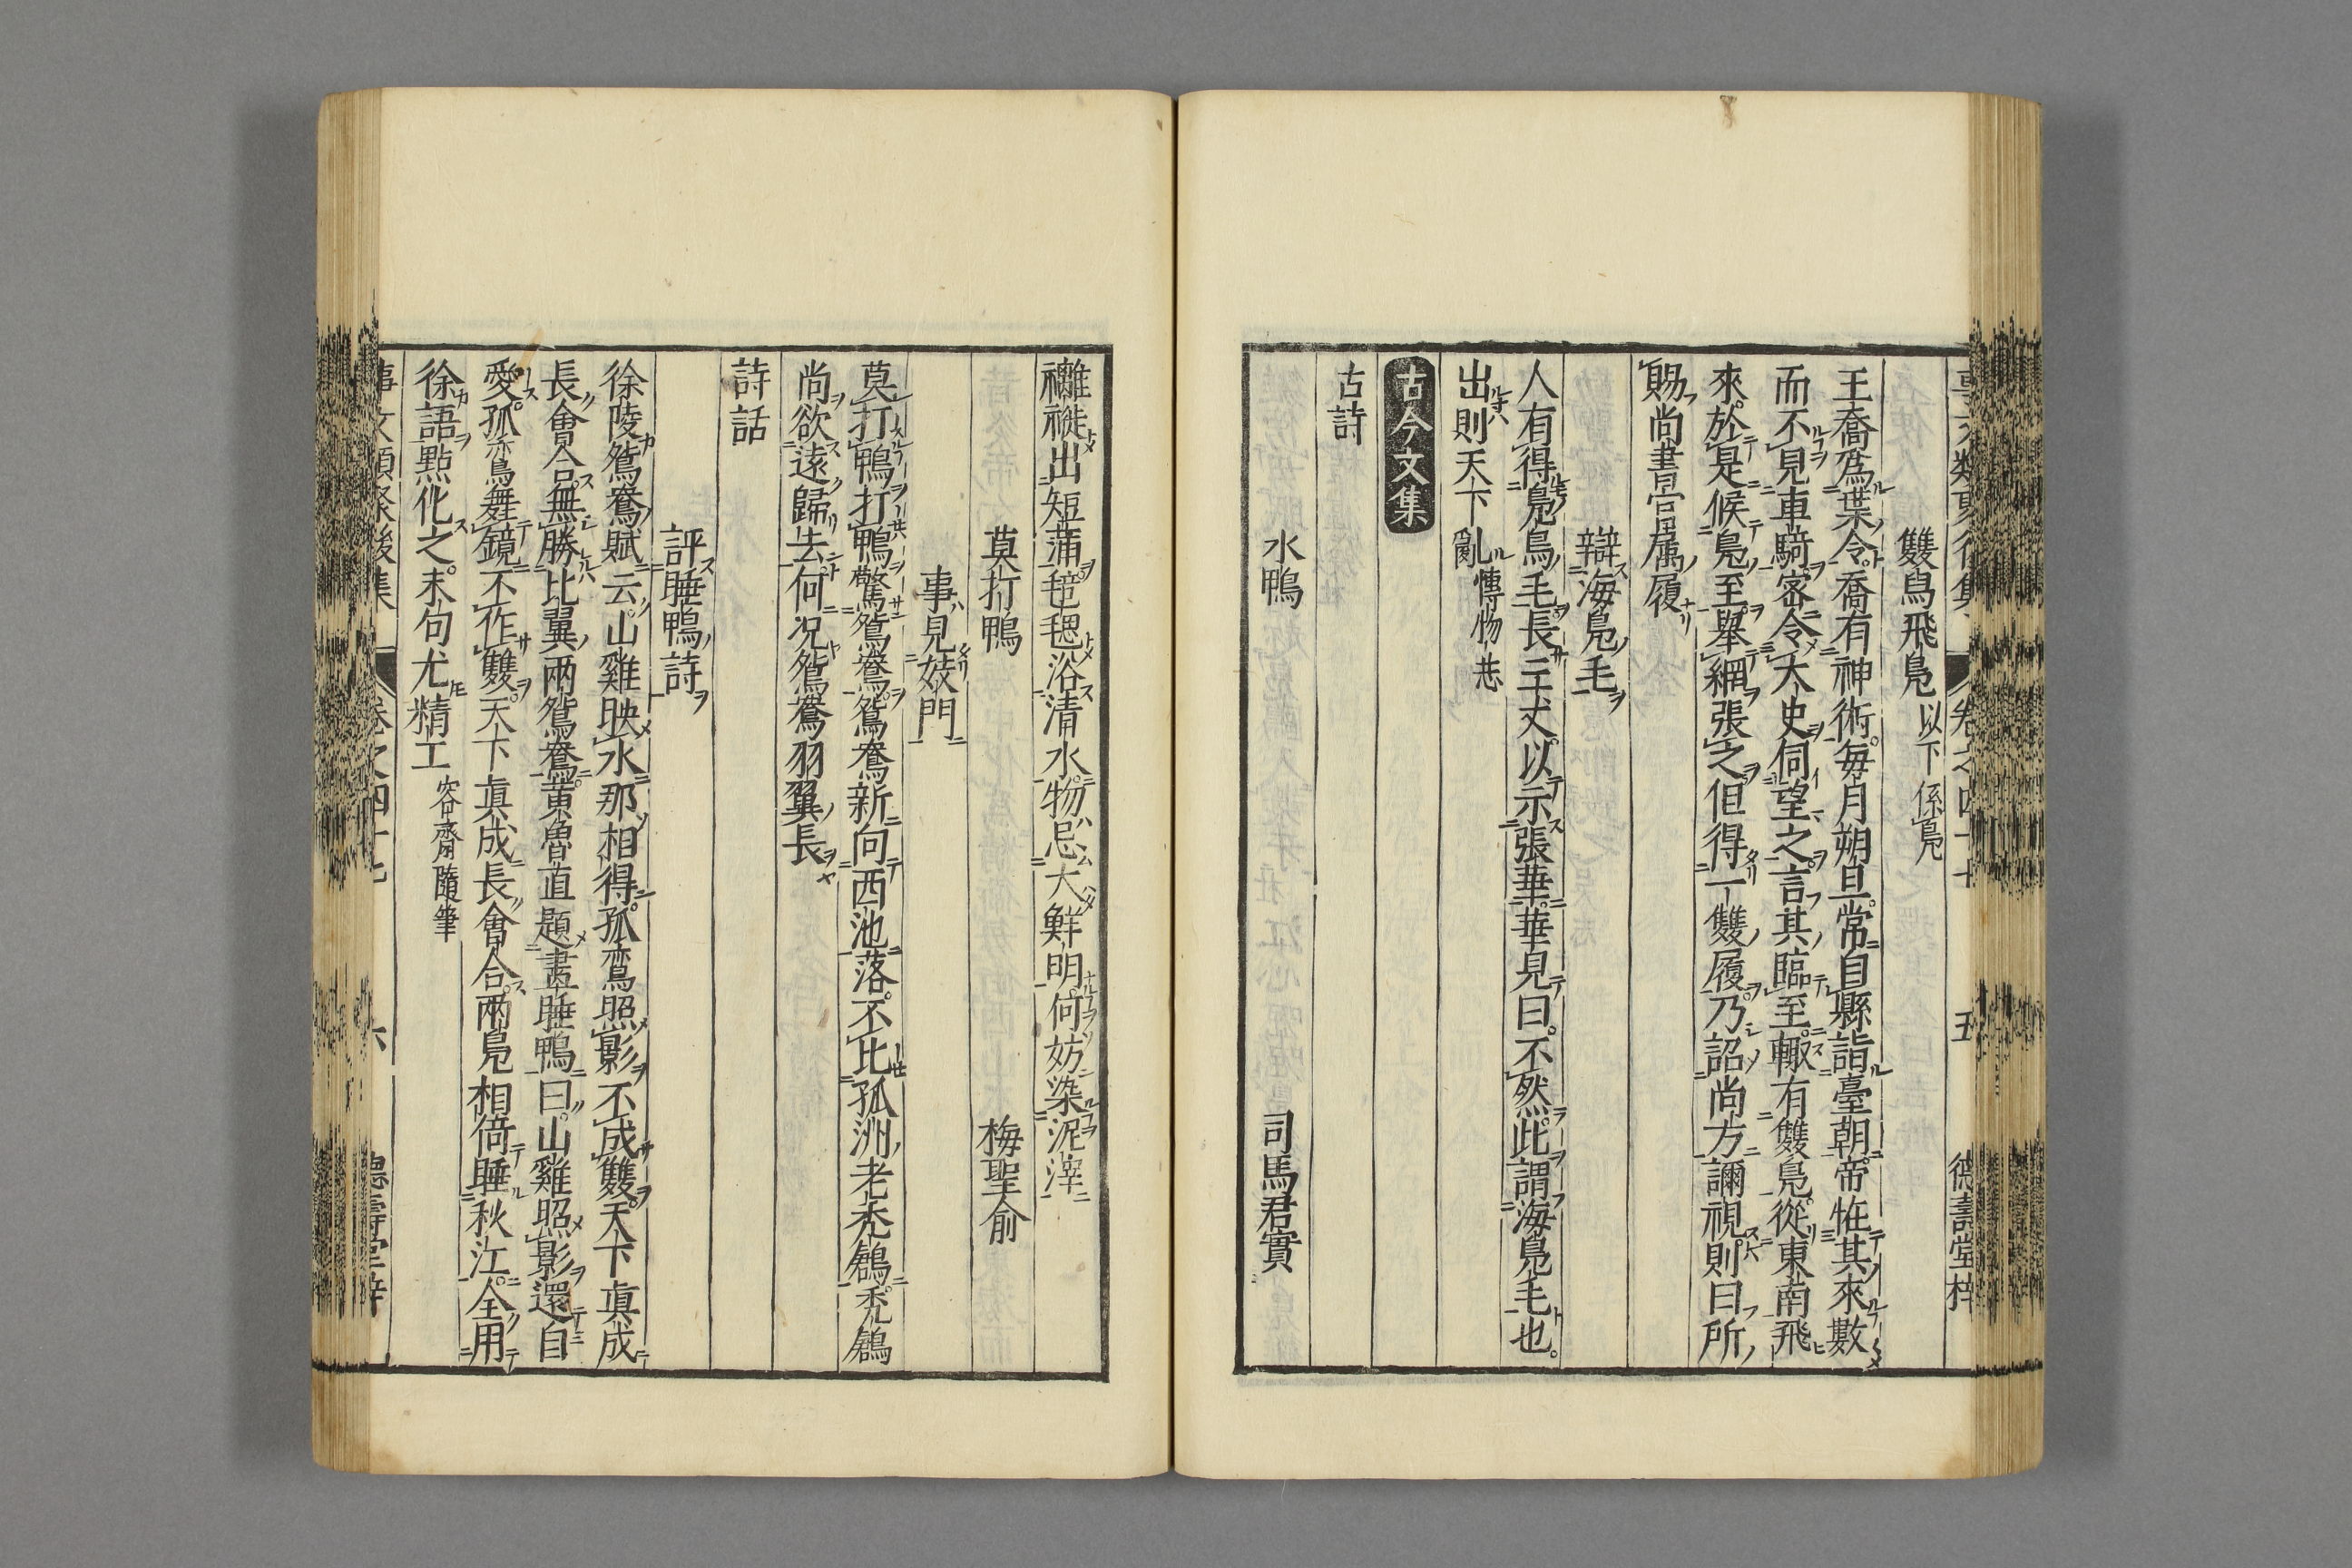 雙舄飛鳬以下係鳬
王喬爲葉令喬有神術每月朔旦常自縣詣臺朝帝恠其來數
而不見車騎密令大史伺望之言其臨至輙有雙鳬從東南飛
來於是候鳬至舉網張之但得一雙履乃詔尚方䛥視則曰所
賜尚書官属履
辯海鳬毛
人有得鳬鳥毛長三丈以示張華華見曰不然此謂海鳬毛也
出則天下亂愽物志
古今文集
古詩
水鴨 司馬君實
褵褷出短蒲毰毸浴清水物忌大鮮明何妨染泥滓
莫打鴨 梅聖俞
事見妓門
莫打鴨打鴨驚鴛鴦鴛鴦新向西池落不比孤洲老禿鶬禿鶬
尚欲遠歸去何况鴛鴦羽翼長
詩話
評睡鴨詩
徐陵鴛鴦賦云山雞映水那相得孤鸞照影不成雙天下眞成
長會合無勝比翼兩鴛鴦黄魯直題畫睡鴨曰山雞照影還自
愛孤鸞舞鏡不作雙天下眞成長會合兩鳬相倚睡秋江全用
徐語點化之末句尤精工容齋隨筆
事文類聚後集 卷之四十七 六 德壽堂梓